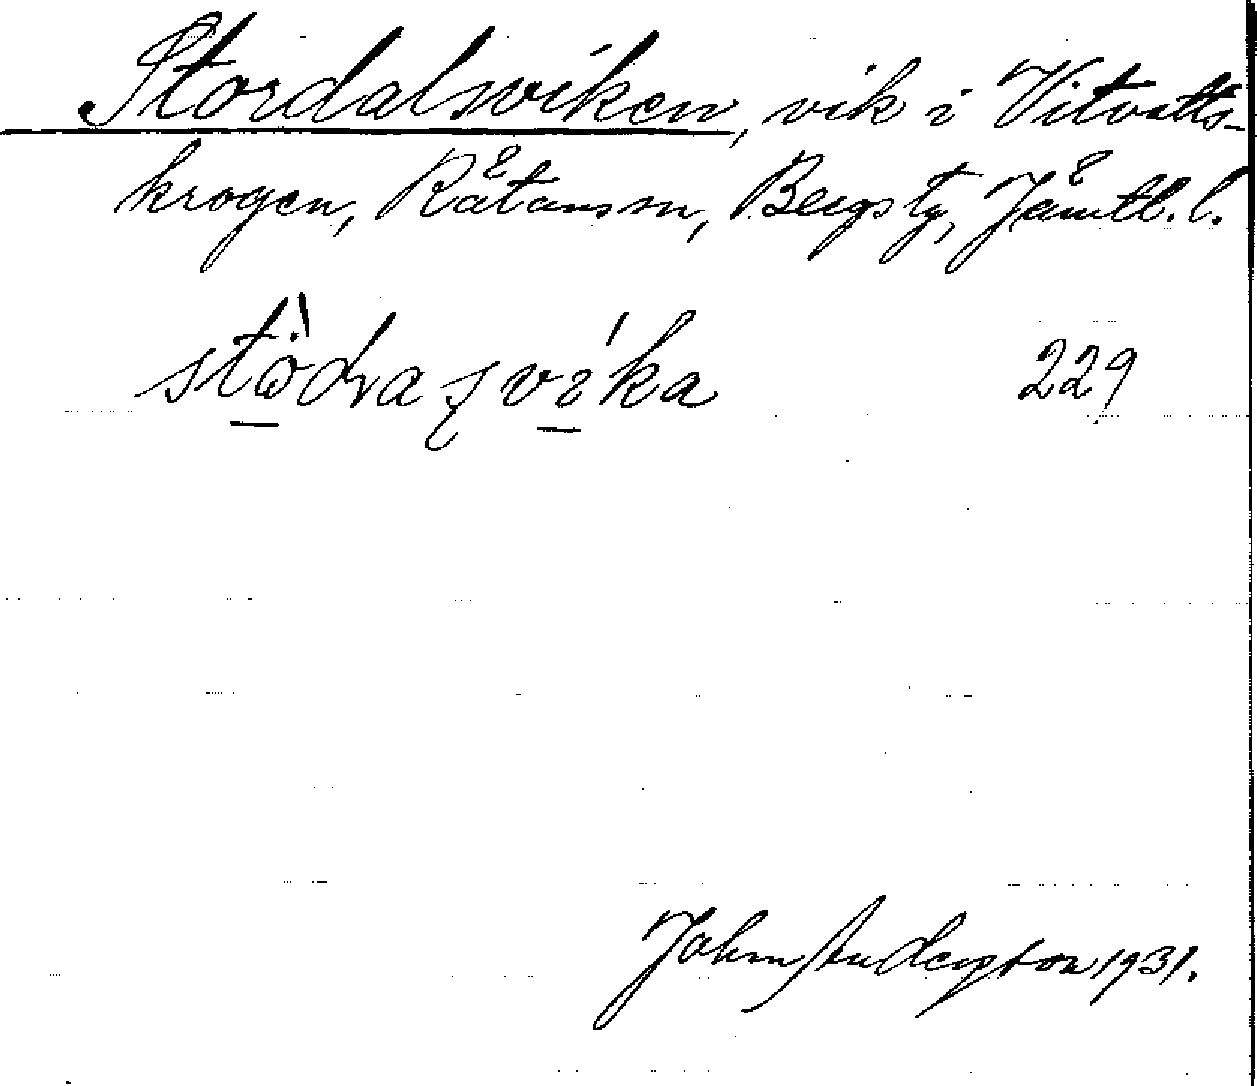 Stordalsviken, vik i Vitvatts-
krogen, Rätans sn, Bergs tg, Jämtl. l.
stödra svika 229
John Anderson 1931.